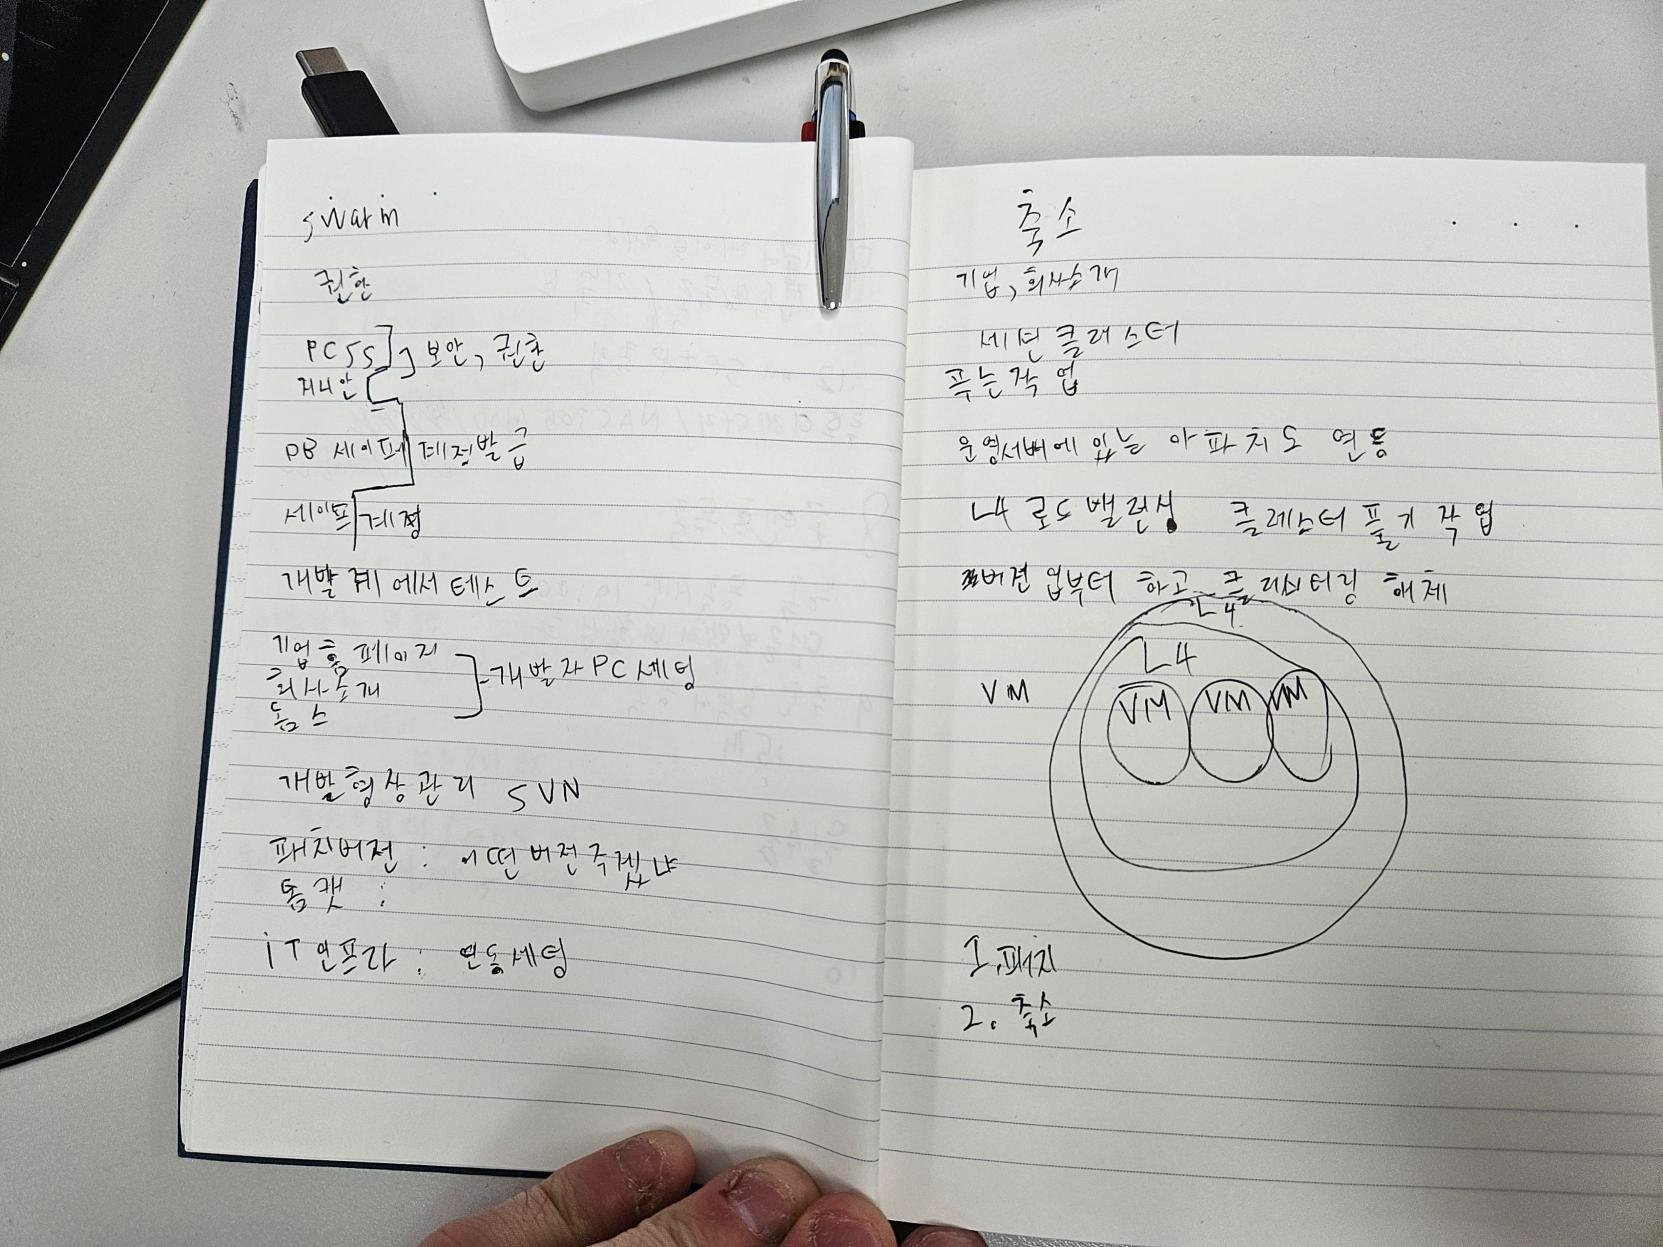 swarm
권한
PC SS 보안, 권한
지니안
DB 세이프 계정발급
세이프 계정
개발계에서 테스트
기업홈페이지
회사소개
톰스
개발자 PC 세팅
개발형상관리 SVN
패치버전 : 어떤버전주겠냐
톰캣 :
iT 인프라 : 연동세팅
축소
기업, 회사소개
세션 클러스터
푸는작업
운영서버에 있는 아파치도 연동
L4 로드밸런싱 클레스터 풀기 작업
버전업부터 하고 클러스터링 해제
L4
L4
VM
VM VM VM
1. 패치
2. 축소